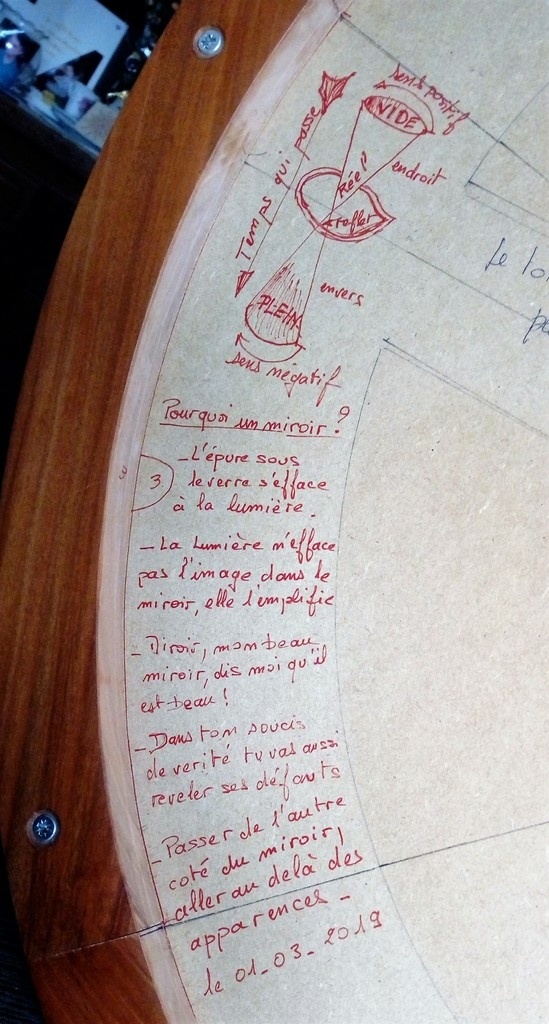 sens positif
VIDE
Temps qui passe
Réel
endroit
reflet
envers
PLEIN
sens négatif
Pourquoi un miroir ?
3
- L'épure sous
le verre s'efface
à la lumière.
- La Lumière n'efface
pas l'image dans le
miroir, elle l'emplifie
- Miroir, mon beau
miroir, dis moi qu'il
est beau !
- Dans ton soucis
de verité tu vas aussi
reveler ses défauts
- Passer de l'autre
coté du miroir,
aller au delà des
apparences -
le 01-03-2019